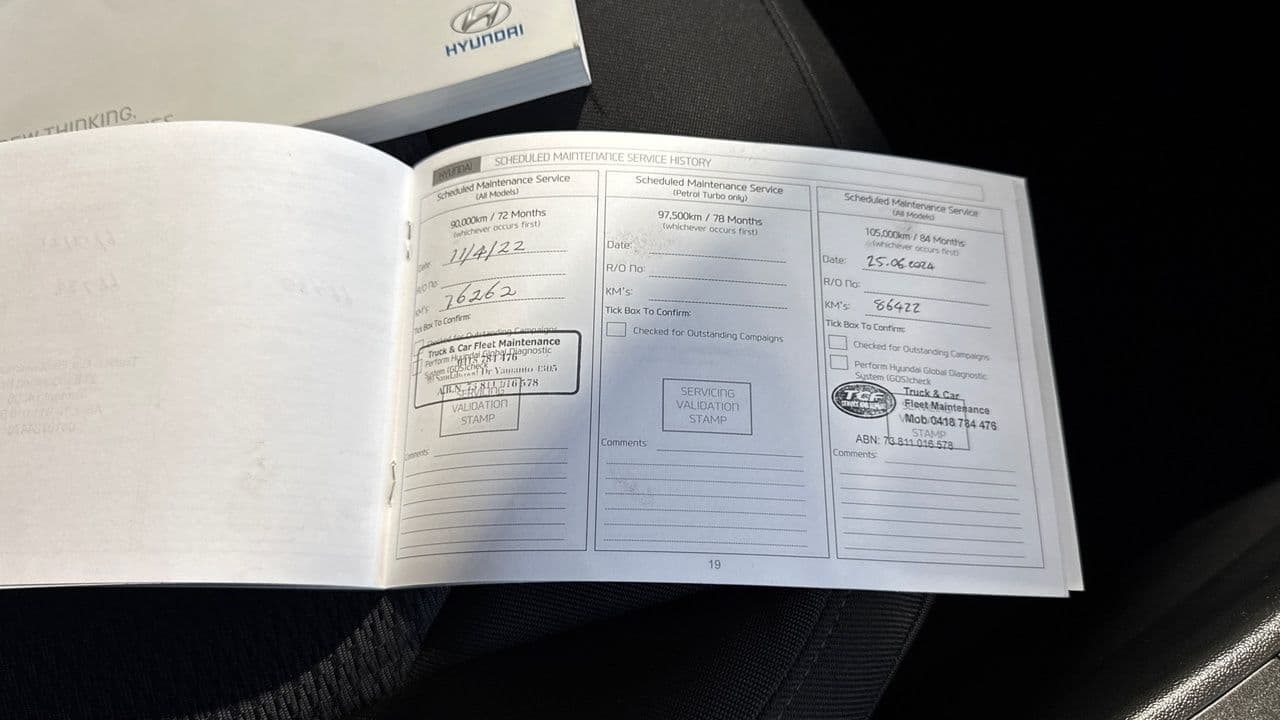 HYUNDAI
THINKING.
HYUNDAI SCHEDULED MAINTENANCE SERVICE HISTORY
Scheduled Maintenance Service
(All Models)
90,000km / 72 Months
(whichever occurs first)
Date: 11/4/22
R/O No:
KM's: 76262
Tick Box To Confirm:
Checked for Outstanding Campaigns
Perform Hyundai Global Diagnostic
System (GDS)check
Truck & Car Fleet Maintenance
Yamanto 4305
SERVICING
VALIDATION
STAMP
Comments:
Scheduled Maintenance Service
(Petrol Turbo only)
97,500km / 78 Months
(whichever occurs first)
Date:
R/O No:
KM's:
Tick Box To Confirm:
Checked for Outstanding Campaigns
SERVICING
VALIDATION
STAMP
Comments
Scheduled Maintenance Service
(All Models)
105,000km / 84 Months
(whichever occurs first)
Date: 25.06.2024
R/O No:
KM's: 86422
Tick Box To Confirm:
Checked for Outstanding Campaigns
Perform Hyundai Global Diagnostic
System (GDS)check
TCF
Truck & Car
Fleet Maintenance
Mob 0418 784 476
STAMP
ABN: 73 811 016 578
Comments:
19